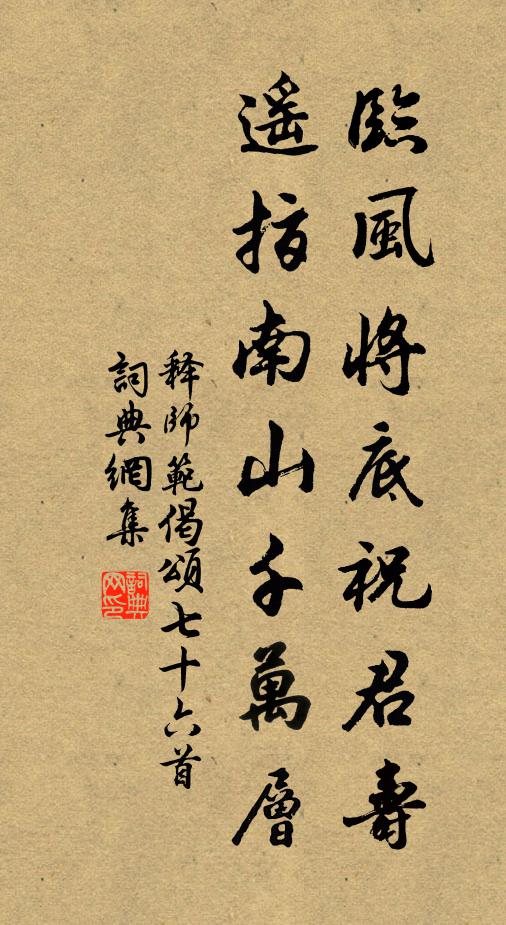 臨風將底祝君壽
遥指南山千萬層
释師範偈頌七十六首
詞典網集
詞典网印